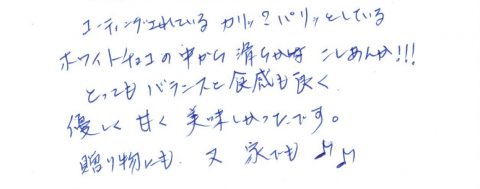 コーティングされている カリッ?パリッとしている
ホワイトチョコの中から 滑らかな こしあんが!!!
とっても バランスと 食感も良く
優しく 甘く 美味しかったです。
贈り物にも 又 家でも ♪♪